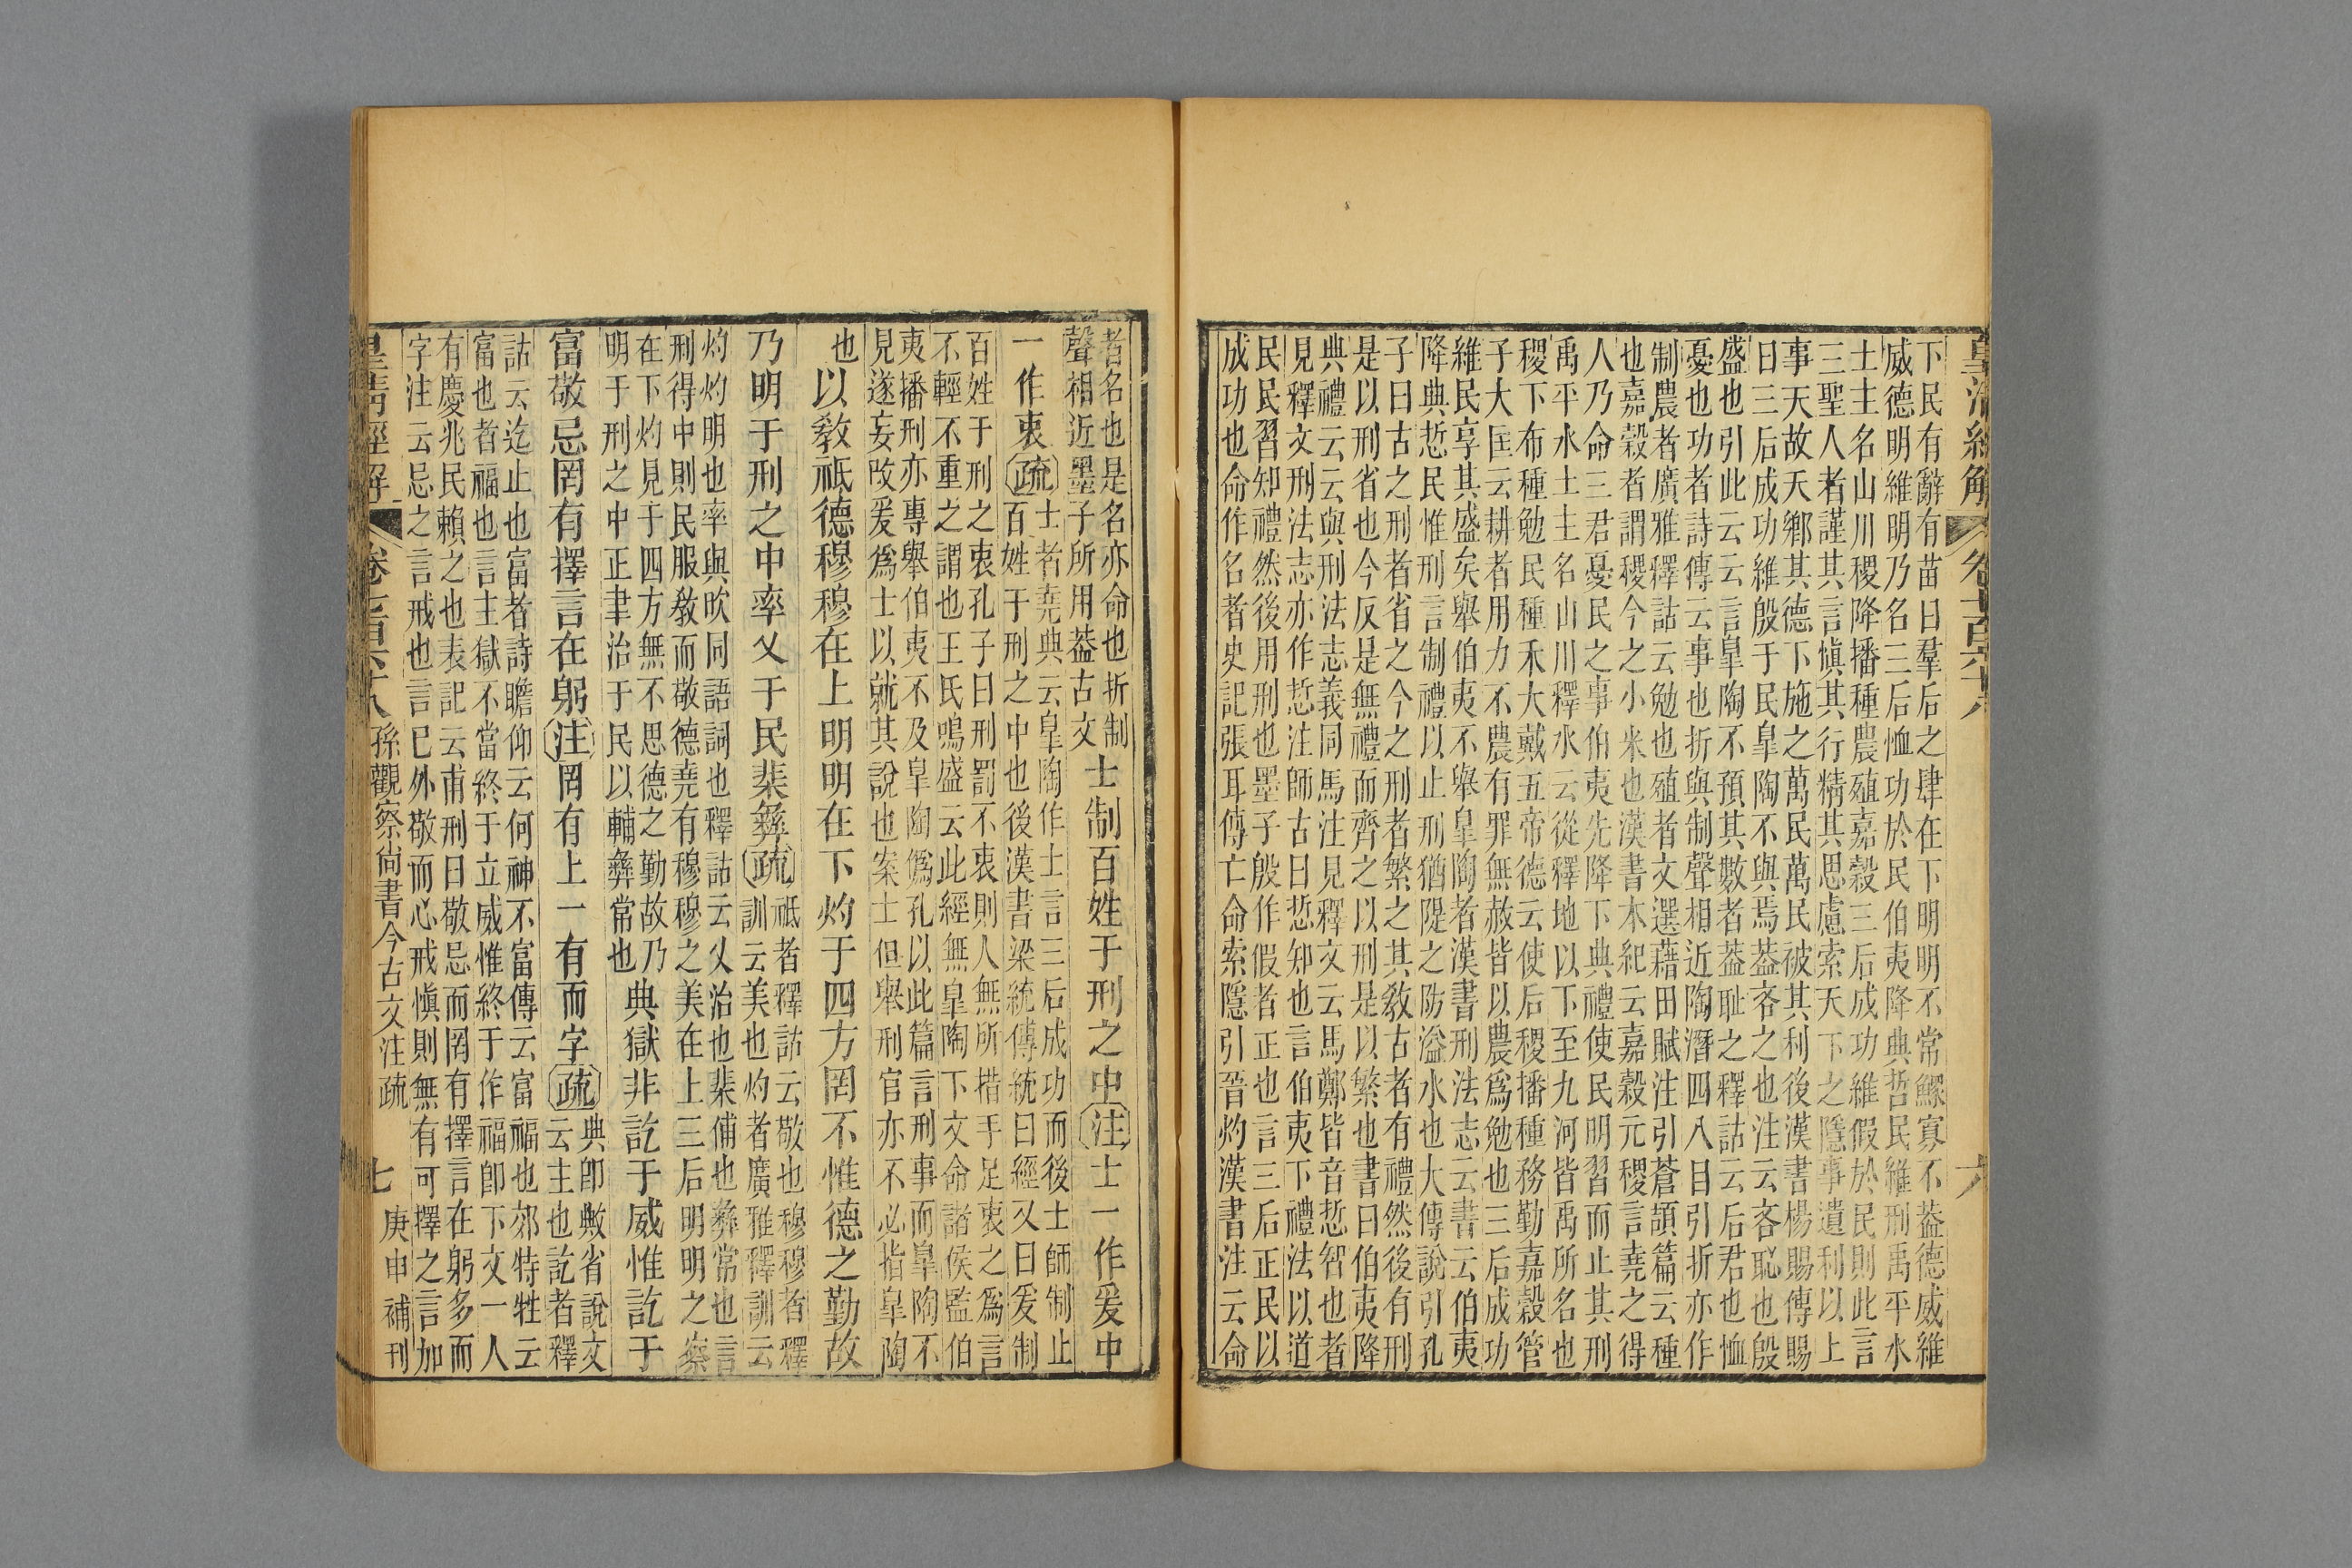 皇清經解
六
下民有辭有苗曰羣后之肆在下明明不常鰥寡不蓋德威維
威德明維明乃名三后恤功於民伯夷降典哲民維刑禹平水
土主名山川稷降播種農殖嘉穀三后成功維假於民則此言
三聖人者謹其言慎其行精其思慮索天下之隱事遺利以上
事天故天鄉其德下施之萬民萬民被其利後漢書楊賜傳賜
曰三后成功維殷于民皐陶不與焉蓋吝之也注云吝恥也殷
盛也引此云云言皐陶不預其數者蓋耻之釋詁云后君也恤
憂也功者詩傳云事也折與制聲相近陶潛四八目引折亦作
制農者廣雅釋詁云勉也殖者文選藉田賦注引蒼頡篇云種
也嘉穀者謂稷今之小米也漢書本紀云嘉穀元稷言堯之得
人乃命三君憂民之事伯夷先降下典禮使民明習而止其刑
禹平水土主名山川釋水云從釋地以下至九河皆禹所名也
稷下布種勉民種禾大戴五帝德云使后稷播種務勤嘉穀管
子大匡云耕者用力不農有罪無赦皆以農爲勉也三后成功
維民享其盛矣舉伯夷不舉皐陶者漢書刑法志云書云伯夷
降典悊民惟刑言制禮以止刑猶隄之防溢水也大傳說引孔
子曰古之刑者省之今之刑者繁之其敎古者有禮然後有刑
是以刑省也今反是無禮而齊之以刑是以繁也書曰伯夷降
典禮云云與刑法志義同馬注見釋文云馬鄭皆音悊智也者
見釋文刑法志亦作悊注師古曰悊知也言伯夷下禮法以道
民民習知禮然後用刑也墨子殷作假者正也言三后正民以
成功也命作名者史記張耳傳亡命索隱引晉灼漢書注云命
者名也是名亦命也折制
聲相近墨子所用蓋古文
士制百姓于刑之中注士一作爰中
一作衷疏
士者堯典云皐陶作士言三后成功而後士師制止
百姓于刑之中也後漢書梁統傳統曰經又曰爰制
百姓于刑之衷孔子曰刑罰不衷則人無所措手足衷之爲言
不輕不重之謂也王氏鳴盛云此經無皐陶下文命諸侯監伯
夷播刑亦專舉伯夷不及皐陶僞孔以此篇言刑事而皐陶不
見遂妄改爰爲士以就其說也案士但舉刑官亦不必指皐陶
也以敎祗德穆穆在上明明在下灼于四方罔不惟德之勤故
乃明于刑之中率乂于民棐彝疏
祗者釋詁云敬也穆穆者釋
訓云美也灼者廣雅釋訓云
灼灼明也率與欥同語詞也釋詁云乂治也棐俌也彝常也言
刑得中則民服敎而敬德堯有穆穆之美在上三后明明之察
在下灼見于四方無不思德之勤故乃
明于刑之中正聿治于民以輔彝常也
典獄非訖于威惟訖于
富敬忌罔有擇言在躬注罔有上一有而字疏
典卽敟省說文
云主也訖者釋
詁云迄止也富者詩瞻仰云何神不富傳云富福也郊特牲云
富也者福也言主獄不當終于立威惟終于作福卽下文一人
有慶兆民賴之也表記云甫刑曰敬忌而罔有擇言在躬多而
字注云忌之言戒也言已外敬而心戒愼則無有可擇之言加
孫觀察尚書今古文注疏 七 庚申補刊